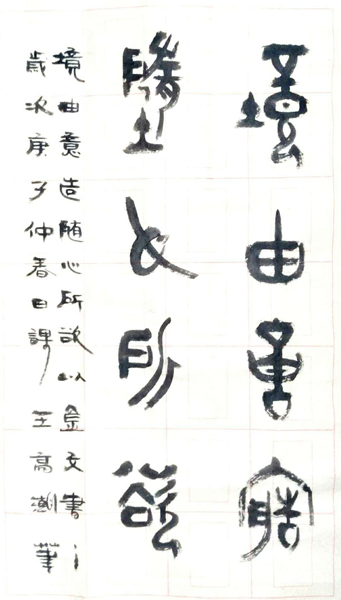 境由意造
隨心所欲
境由意造随心所欲以金文書之
歲次庚子仲春日課 王高潮 筆